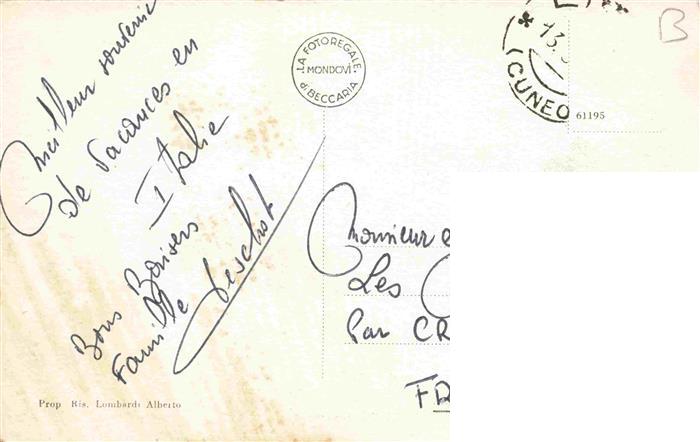 Meilleur souvenir
de Vacances en
Italie
Bons Baisers
Famille Deschot
LA FOTOREGALE
MONDOVÌ
di BECCARIA
(CUNEO
61195
B
Monsieur e
Les C
Par CR
FR
Prop Ris. Lombardi Alberto